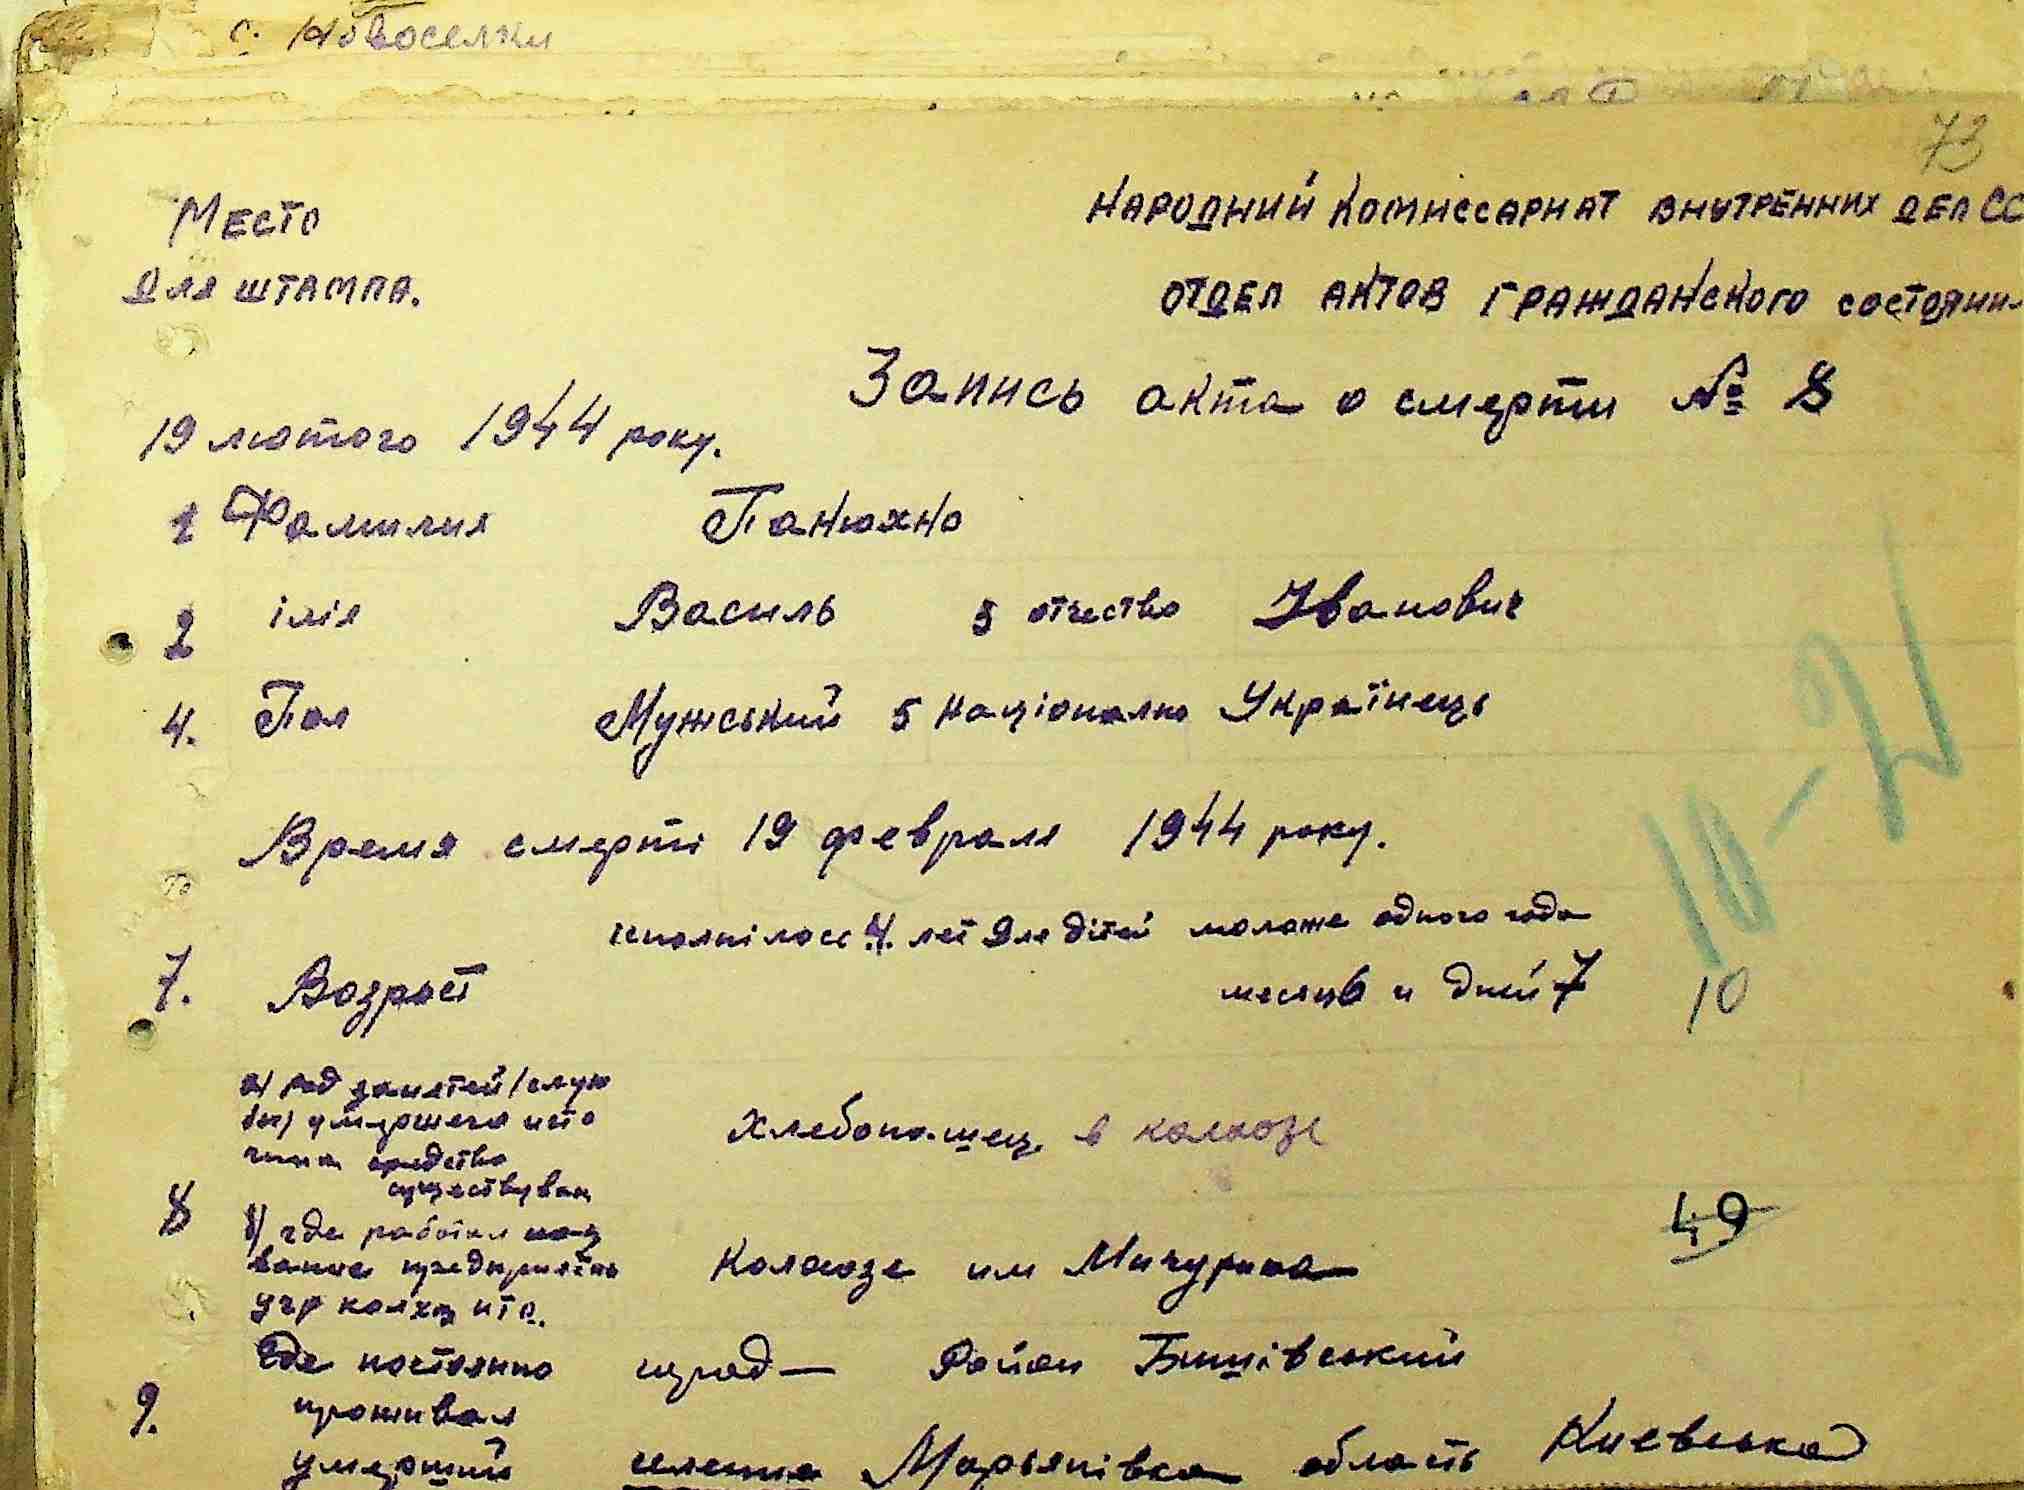 с. Новоселки
73
Место
для штампа.
Народний Комиссариат внутренних дел СС
отдел актов гражданского состояни
Запись акта о смерти № 8
19 лютого 1944 року.
1 Фамилия Панюхно
2 імія Василь 3 отчество Іванович
4. Пол Мужський 5 націонално Українець
Время смерті 19 февраля 1944 року.
10-2
исполнілось 4. лет для дітей моложе одного года
7. Возраст месяц 6 и дней 7
10
а) род занятей /служ
бы) умершего исто
чник средство
существуван
хлебопашец в колхозе
8
б) где работал наз
вание предприятия
учр колхоз ито.
Колхозе им Мичурина
49
9.
Где постоянно город— Район Бишівський
проживал
умерший селение Марьянівка область Киевська